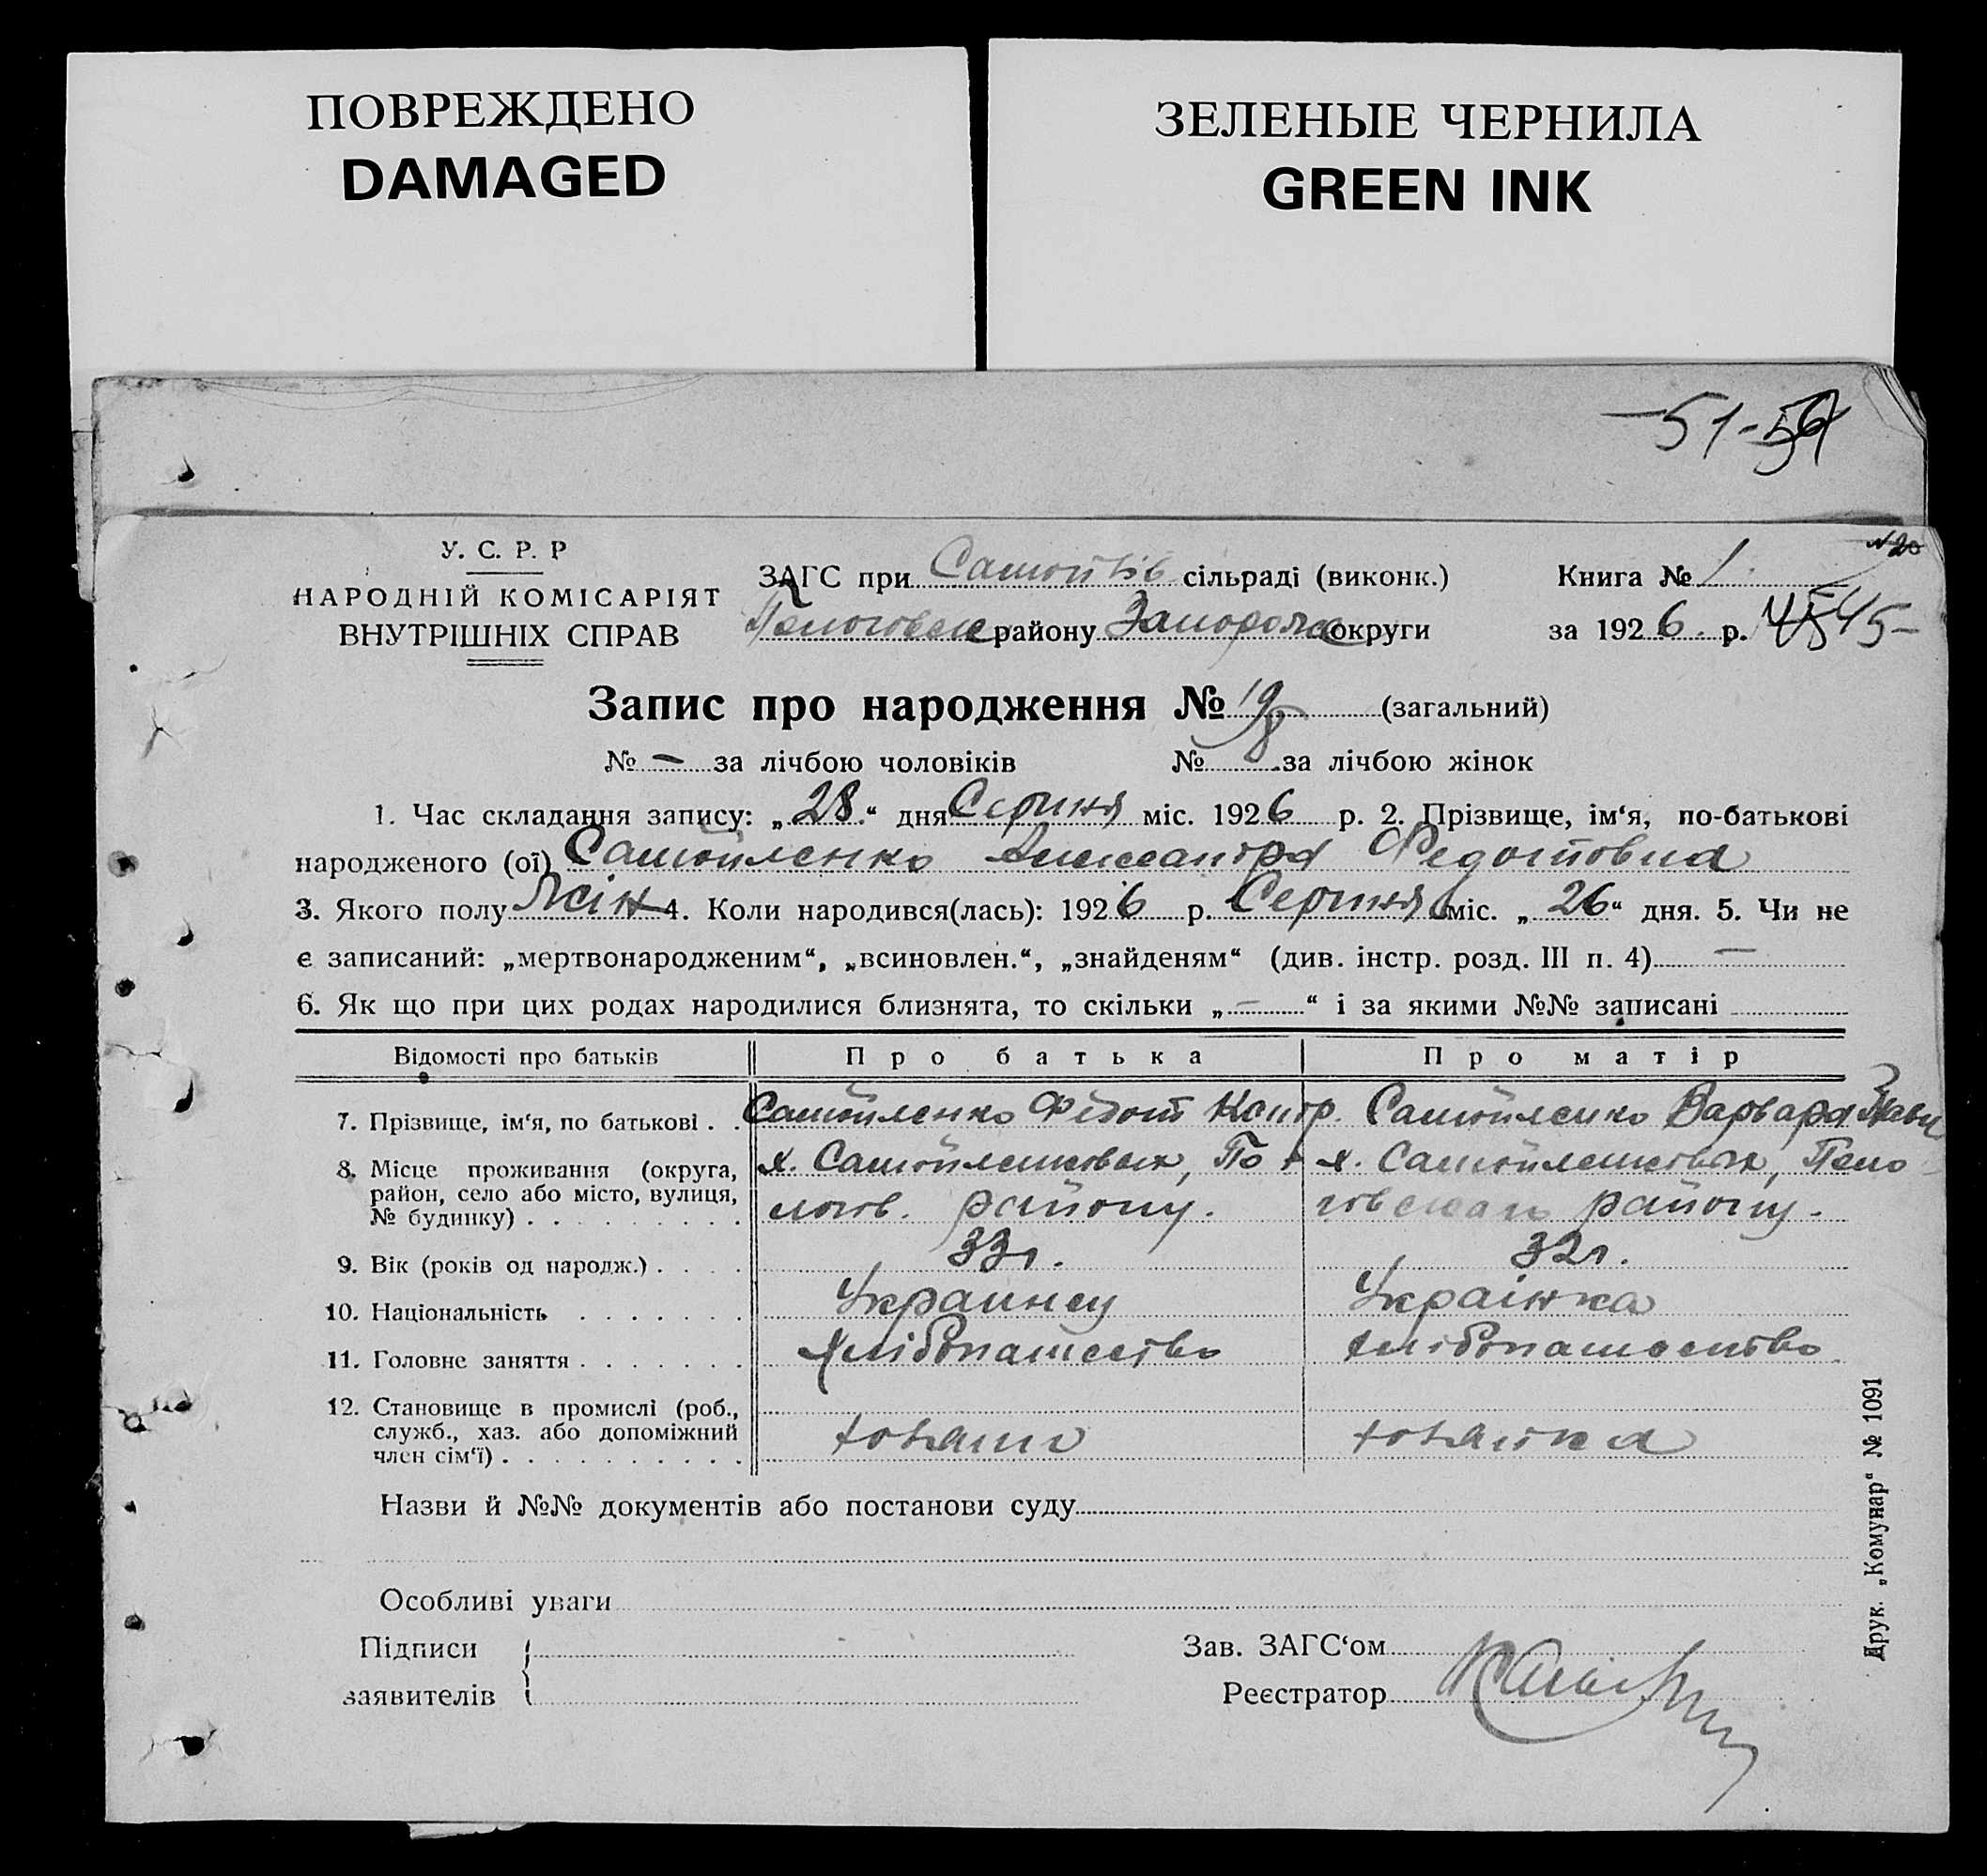 ПОВРЕЖДЕНО
DAMAGED
ЗЕЛЕНЫЕ ЧЕРНИЛА
GREEN INK
51-
У. С. Р. Р
НАРОДНІЙ КОМІСАРІЯТ
ВНУТРІШНІХ СПРАВ
ЗАГС при Самойлів сільраді (виконк.)
району Запорожс округи
Книга № 1.
№20
за 1926 р. 45
Запис про народження № 19 (загальний)
№ — за лічбою чоловіків
№ 8 за лічбою жінок
1. Час складання запису: „28“ дня Серпня міс. 1926 р. 2. Прізвище, ім‘я, по-батькові
народженого (ої) Самойленко Александра Федотовна
3. Якого полу Жін 4. Коли народився(лась): 1926 р. Серпня міс. „26“ дня. 5. Чи не
є записаний: „мертвонародженим“, „всиновлен.“, „знайденям“ (див. інстр. розд. III п. 4) —
6. Як що при цих родах народилися близнята, то скільки „—“ і за якими №№ записані
Відомості про батьків
Про батька
Про матір
7. Прізвище, ім‘я, по батькові . .
Самойленко Федот Кондр.
Самойленко Варвара Павл
8. Місце проживання (округа,
район, село або місто, вулиця,
№ будинку) . . . . . . . . .
х. Самойленковых, По
логов. району.
х. Самойленковых, Поло
говскаго району.
9. Вік (років од народж.) . . . .
33 г.
32 г.
10. Національність . . . . . . .
Украинец
Украінка
11. Головне заняття . . . . . . .
Хлібопашество
хлібопашество
12. Становище в промислі (роб.,
служб., хаз. або допоміжний
член сім‘ї) . . . . . . . . . .
хозяин
хозяйка
Назви й №№ документів або постанови суду
Особливі уваги
Підписи
заявителів
Зав. ЗАГС‘ом
Реєстратор
Друк. „Комунар“ № 1091